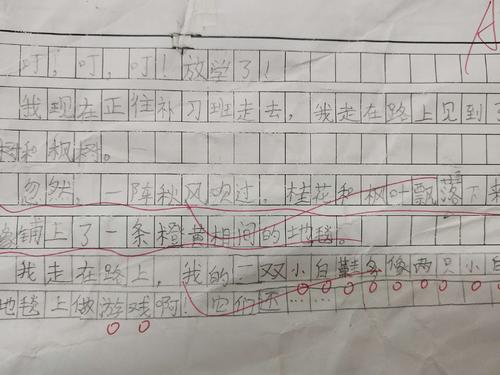 叮，叮，叮！放学了！
我现在正往补习班走去，我走在路上见到了
树和枫树。
忽然，一阵秋风吹过，桂花和枫叶飘落下来
像铺上了一条橙黄相间的地毯。
我走在路上，我的一双小白鞋多像两只小白
地毯上做游戏啊！它们还……